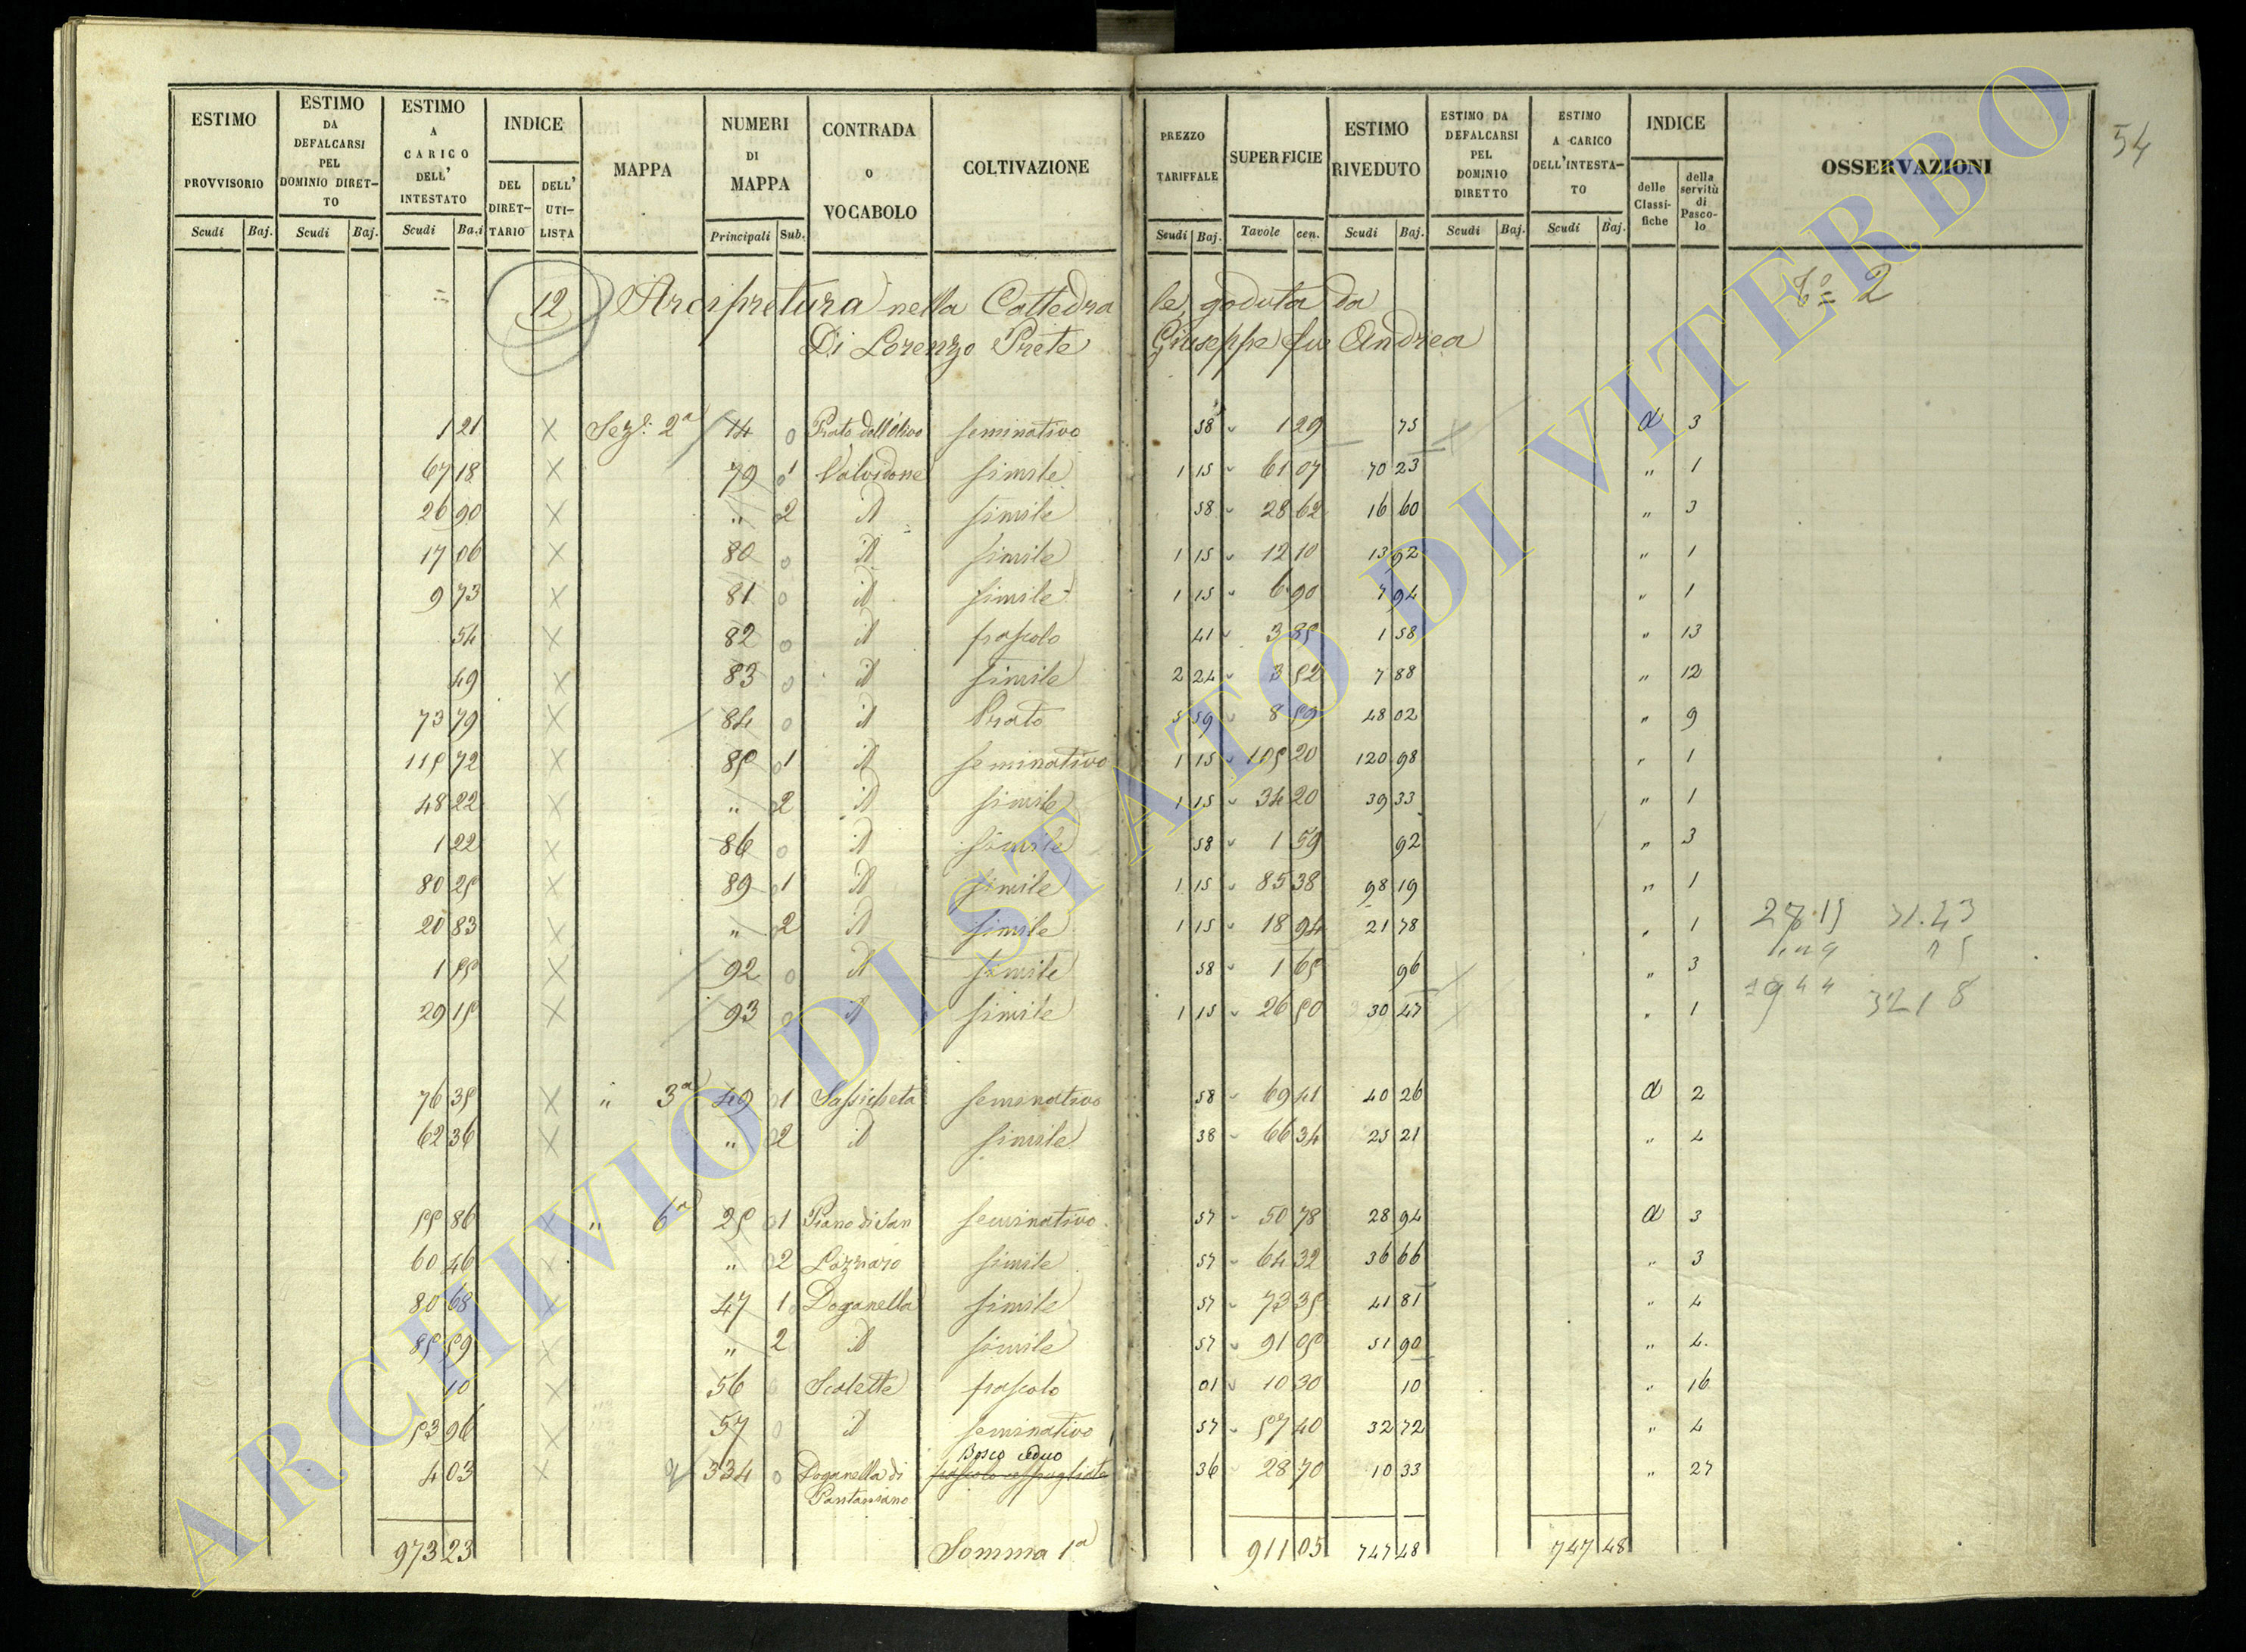 54
ESTIMO PROVVISORIO
ESTIMO DA DEFALCARSI PEL DOMINIO DIRET-TO
ESTIMO A CARICO DELL' INTESTATO
INDICE
DEL DIRET-TARIO
DELL' UTI-LISTA
MAPPA
NUMERI DI MAPPA
CONTRADA O VOCABOLO
COLTIVAZIONE
PREZZO TARIFFALE
SUPERFICIE
ESTIMO RIVEDUTO
ESTIMO DA DEFALCARSI PEL DOMINIO DIRETTO
ESTIMO A CARICO DELL'INTESTA-TO
INDICE
delle Classi-fiche
della servitù di Pasco-lo
OSSERVAZIONI
Scudi Baj. Scudi Baj. Scudi Baj. Principali Sub. Scudi Baj. Tavole cen. Scudi Baj. Scudi Baj. Scudi Baj.
12 Arcipretura nella Cattedra le goduta da 2
Di Lorenzo Prete Giuseppe fu Andrea
1 21 X Sez: 2a 14 0 Prato dell'Olivo seminativo 58 1 29 75 a 3
67 18 X 79 1 Valvidone simile 1 15 61 07 70 23 " 1
26 90 X " 2 id simile 58 28 62 16 60 " 3
17 06 X 80 0 id simile 1 15 12 10 13 92 " 1
9 73 X 81 0 id simile 1 15 6 90 7 94 " 1
54 X 82 0 id pascolo 41 3 85 1 58 " 13
49 X 83 0 id simile 2 24 3 52 7 88 " 12
73 79 X 84 0 id Prato 5 59 8 59 48 02 " 9
115 72 X 85 1 id seminativo 1 15 105 20 120 98 " 1
48 22 X " 2 id simile 1 15 34 20 39 33 " 1
1 22 X 86 0 id simile 58 1 59 92 " 3
80 25 X 89 1 id simile 1 15 85 38 98 19 " 1
20 83 X " 2 id simile 1 15 18 94 21 78 " 1
1 55 X 92 0 id simile 58 1 65 96 " 3
29 15 X 93 0 id simile 1 15 26 50 30 47 " 1
3218
76 35 X " 3a 49 1 Sassicheta seminativo 58 69 41 40 26 a 2
62 36 X " 2 id simile 38 66 34 25 21 " 4
55 86 X " 6a 25 1 Piano di San seminativo 57 50 78 28 94 a 3
60 46 X " 2 Lazzaro simile 57 64 32 36 66 " 3
80 68 X 47 1 Doganella simile 57 73 35 41 81 " 4
85 59 X " 2 id simile 57 91 05 51 90 " 4
10 X 56 0 Scalette pascolo 01 10 30 10 " 16
53 96 X 57 0 id seminativo 57 57 40 32 72 " 4
Bosco ceduo
4 03 X 334 0 Doganella di pascolo cespugliato 36 28 70 10 33 " 27
Pantaniano
973 23 Somma 1a 911 05 747 48 747 48
ARCHIVIO DI STATO DI VITERBO